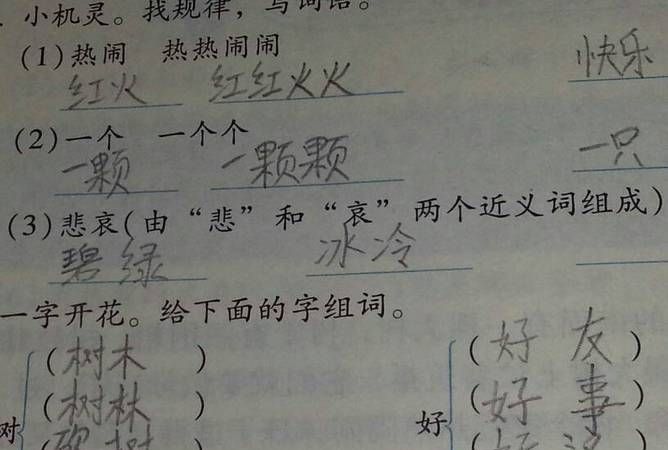 小机灵。找规律，写词语。
(1)热闹 热热闹闹
红火 红红火火 快乐
(2)一个 一个个
一颗 一颗颗 一只
(3)悲哀(由“悲”和“哀”两个近义词组成)
碧绿 冰冷
一字开花。给下面的字组词。
(树木) (好友)
(树林) (好事)
树 好